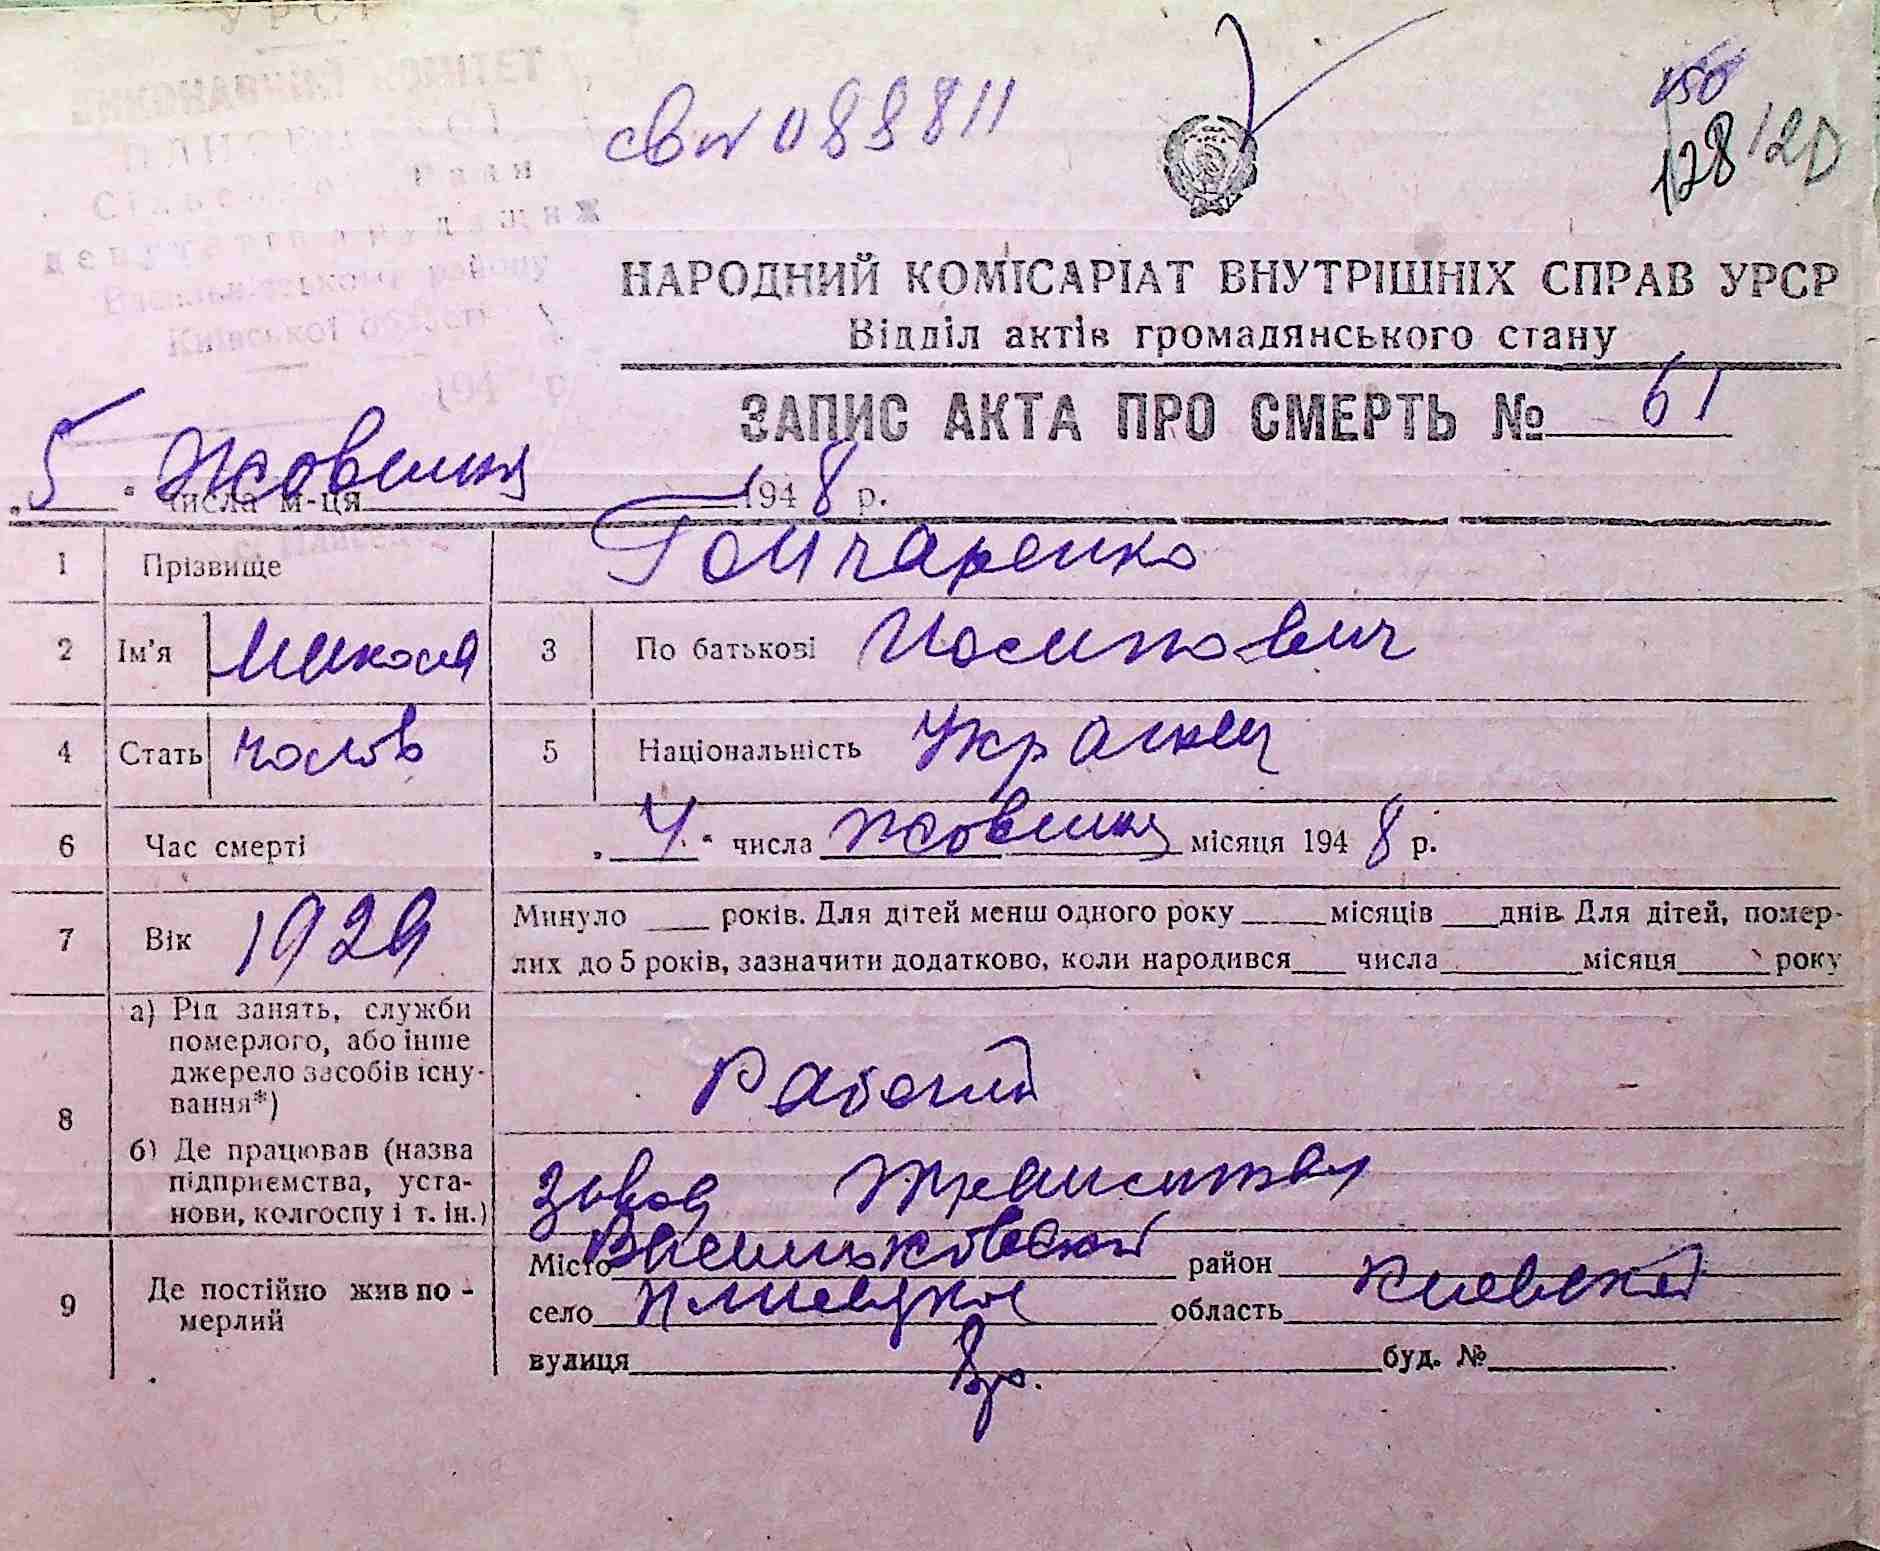 УРСР
ВИКОНАВЧИЙ КОМІТЕТ
Сільської Ради
депутатів трудящих
Васильківського району
Київської області
194 р.
св № 088811
150
128 120
НАРОДНИЙ КОМІСАРІАТ ВНУТРІШНІХ СПРАВ УРСР
Відділ актів громадянського стану
ЗАПИС АКТА ПРО СМЕРТЬ № 61
„5“ числа м-ця Жовтня 1948 р.
1 Прізвище Гончаренко
2 Ім’я Микола 3 По батькові Йосипович
4 Стать чолов 5 Національність Українец
6 Час смерті „4“ числа Жовтня місяця 1948 р.
7 Вік 1929 Минуло ___ років. Для дітей менш одного року ___ місяців ___ днів. Для дітей, помер-
лих до 5 років, зазначити додатково, коли народився ___ числа ___ місяця ___ року
8 а) Рід занять, служби
померлого, або інше
джерело засобів існу-
вання*)
Рабочий
б) Де працював (назва
підприємства, уста-
нови, колгоспу і т. ін.)
завод
9 Де постійно жив по-
мерлий
Місто Васильковский район
село область Киевской
вулиця буд. №